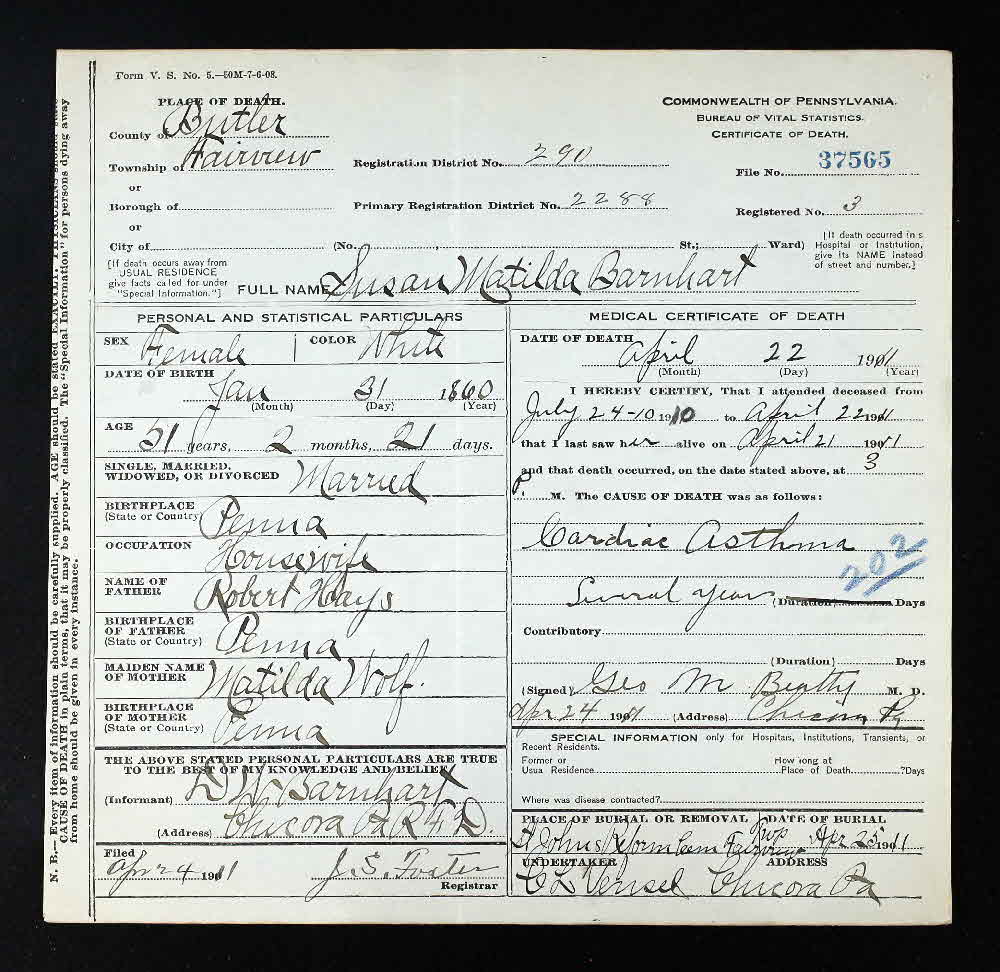 Form V. S. No. 5.—50M-7-6-08.
PLACE OF DEATH.
County of Butler
Township of Fairview
or
Borough of
or
City of
(No. , St.; Ward)
[If death occurs away from USUAL RESIDENCE give facts called for under "Special Information."]
COMMONWEALTH OF PENNSYLVANIA.
BUREAU OF VITAL STATISTICS.
CERTIFICATE OF DEATH.
Registration District No. 290
File No. 37565
Primary Registration District No. 2288
Registered No. 3
[If death occurred in a Hospital or Institution, give its NAME instead of street and number.]
FULL NAME Susan Matilda Barnhart
PERSONAL AND STATISTICAL PARTICULARS
SEX Female COLOR White
DATE OF BIRTH
Jan 31 1860
(Month) (Day) (Year)
AGE
51 years, 2 months, 21 days.
SINGLE, MARRIED,
WIDOWED, OR DIVORCED Married
BIRTHPLACE
(State or Country) Penna
OCCUPATION
Housewife
NAME OF
FATHER Robert Hays
BIRTHPLACE
OF FATHER
(State or Country) Penna
MAIDEN NAME
OF MOTHER Matilda Wolf.
BIRTHPLACE
OF MOTHER
(State or Country) Penna
THE ABOVE STATED PERSONAL PARTICULARS ARE TRUE
TO THE BEST OF MY KNOWLEDGE AND BELIEF
(Informant) D W Barnhart
(Address) Chicora Pa R F D.
Filed
Apr 4 1911 J. S. Foster
Registrar
MEDICAL CERTIFICATE OF DEATH
DATE OF DEATH
April 22 1911
(Month) (Day) (Year)
I HEREBY CERTIFY, That I attended deceased from
July 24-10 1910 to April 22 1911
that I last saw her alive on April 21 1911
and that death occurred, on the date stated above, at 3
P. M. The CAUSE OF DEATH was as follows:
Cardiac Asthma
202
Several years (Duration) Days
Contributory
(Duration) Days
(Signed) Geo M Beatty M. D.
Apr 24 1911 (Address) Chicora Pa
SPECIAL INFORMATION only for Hospitals, Institutions, Transients, or
Recent Residents.
Former or
Usual Residence
How long at
Place of Death ?Days
Where was disease contracted?
PLACE OF BURIAL OR REMOVAL DATE OF BURIAL
St Johns Reform Cem Fairview Twp Apr 25 1911
UNDERTAKER ADDRESS
Chicora Pa
N. B.—Every item of information should be carefully supplied. AGE should be stated EXACTLY. PHYSICIANS should state
CAUSE OF DEATH in plain terms, that it may be properly classified. The "Special Information" for persons dying away
from home should be given in every instance.